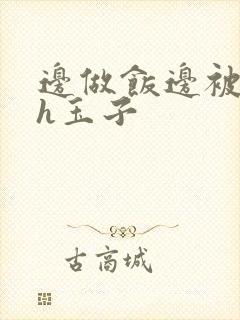 邊做飯邊被
h玉子
古商城